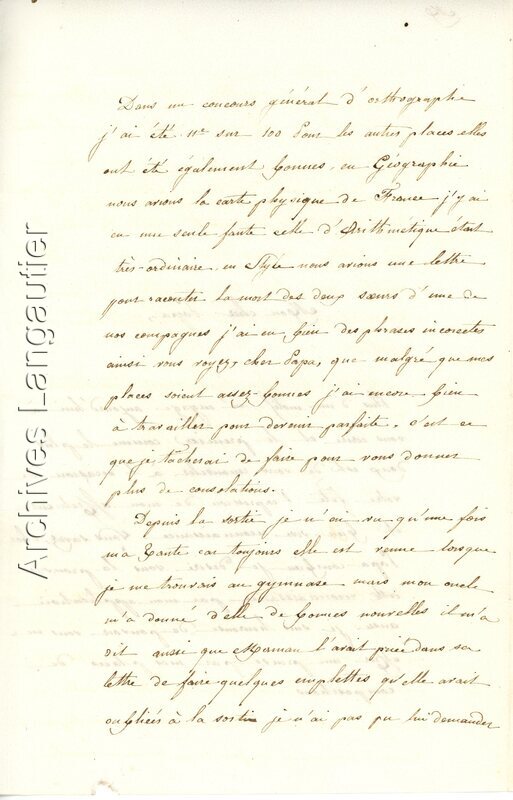 Dans un concours général d'orthographe
j'ai été 11e sur 100 Pour les autres places elles
ont été également bonnes, en Géographie
nous avions la carte physique de France j'y ai
eu une seule faute celle d'Arithmétique était
très-ordinaire, en Style nous avions une lettre
pour raconter la mort des deux sœurs d'une de
nos compagnes j'ai eu bien des phrases incorectes
ainsi vous voyez, cher Papa, que malgré que mes
places soient assez-bonnes j'ai encore bien
à travailler pour devenir parfaite, c'est ce
que je tâcherai de faire pour vous donner
plus de consolations.
Depuis la sortie je n'ai vu qu'une fois
ma Tante car toujours elle est venue lorsque
je me trouvais au gymnase mais mon oncle
m'a donné d'elle de bonnes nouvelles il m'a
dit aussi que Maman l'avait priée dans sa
lettre de faire quelques emplettes qu'elle avait
oubliées à la sortie je n'ai pas pu lui demander
Archives Langautier